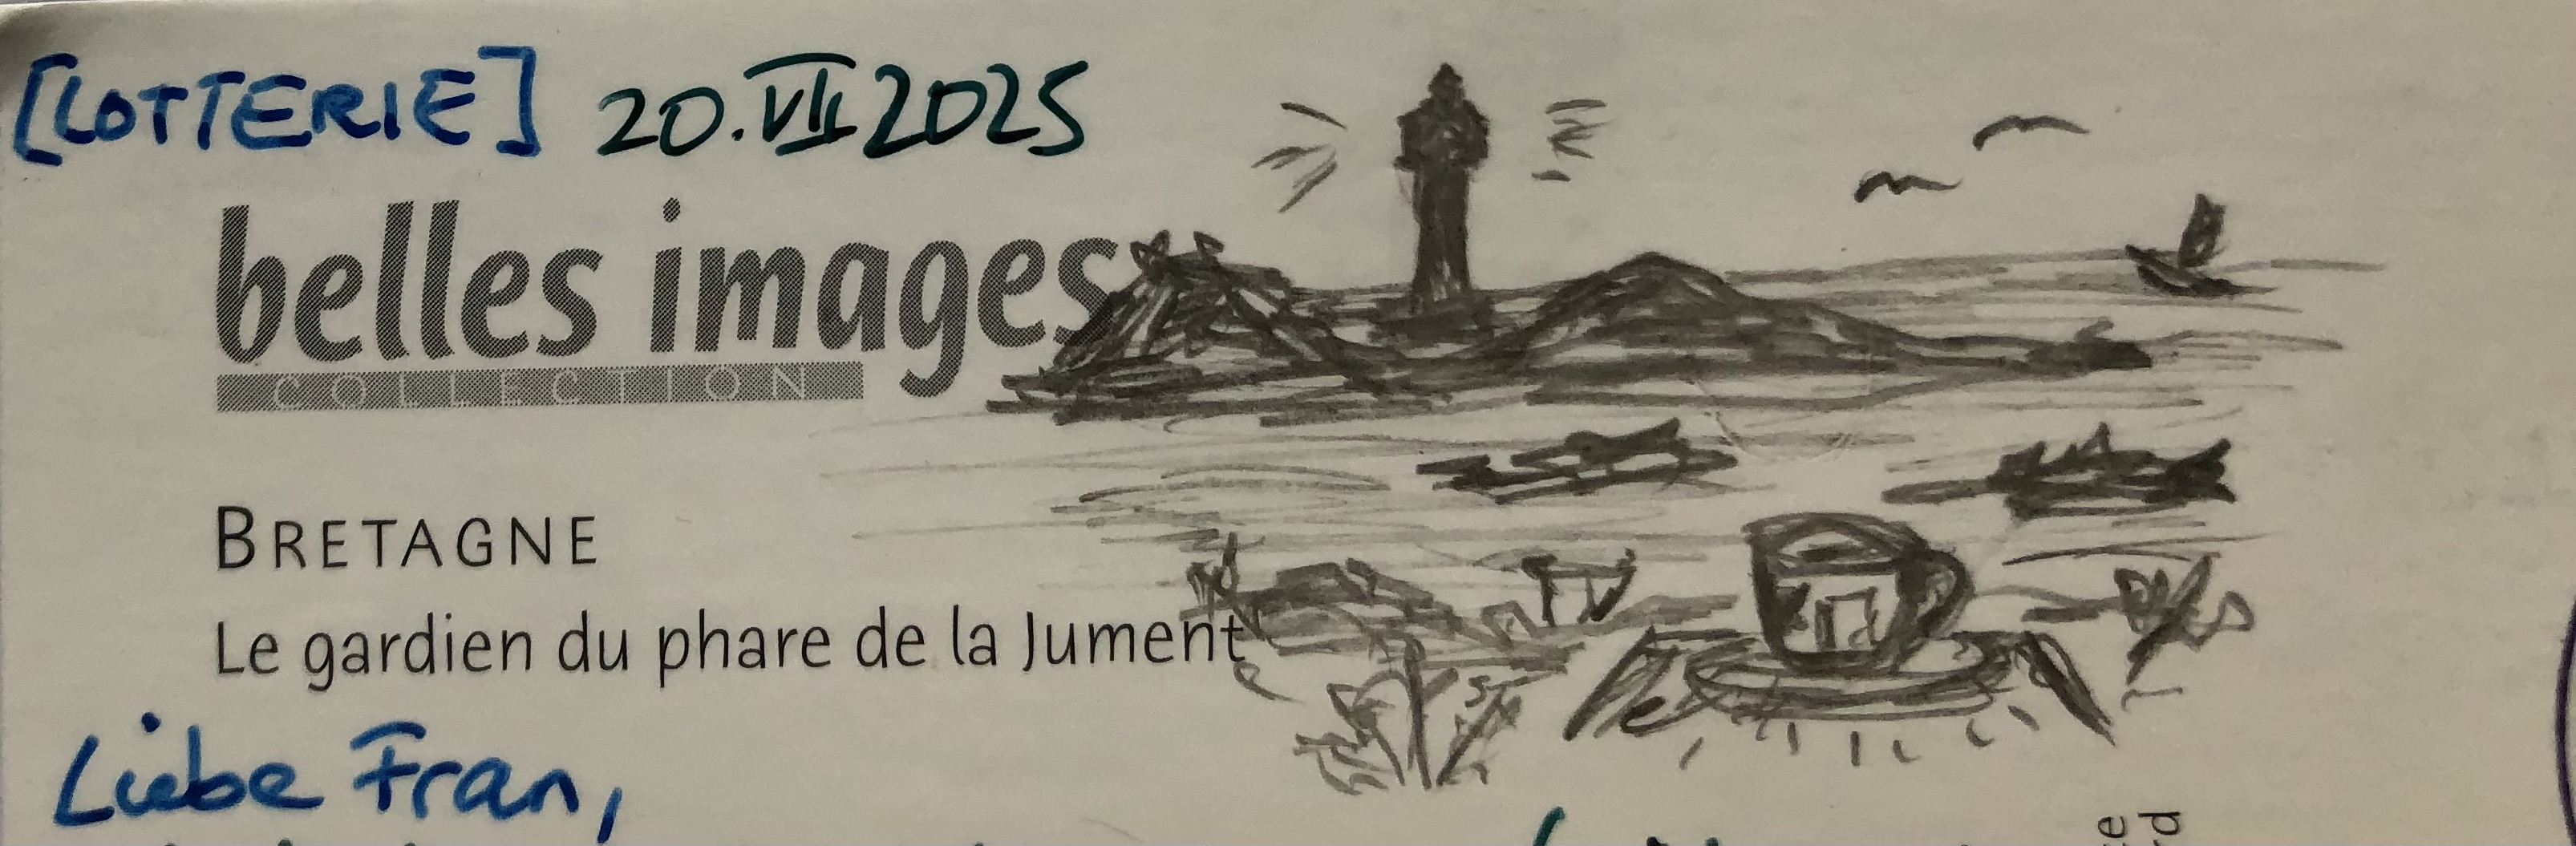 [LOTTERIE] 20.VII 2025
belles images
COLLECTION
BRETAGNE
Le gardien du phare de la Jument
Liebe Fran,